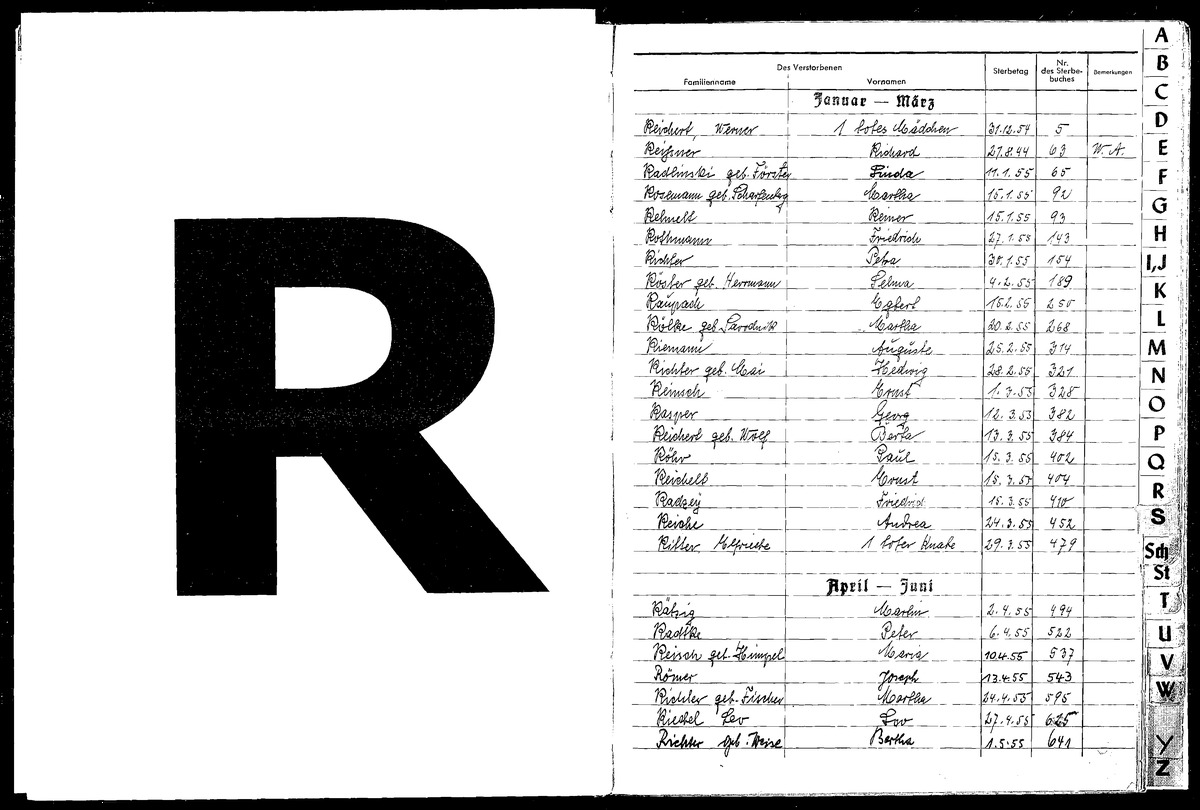 R
Des Verstorbenen
Familienname Vornamen Sterbetag Nr. des Sterbe-buches Bemerkungen
Januar — März
Reichert, Werner 1 totes Mädchen 31.12.54 5
Reißner Richard 27.8.44 63 W. A.
Radlinski geb. Förster Linda 11.1.55 65
Rosemann geb. Scharfenberg Martha 15.1.55 92
Rehnelt Reiner 15.1.55 93
Rothmann Friedrich 27.1.55 143
Richter Petra 30.1.55 154
Röster geb. Herrmann Selma 4.2.55 189
Raupach Egbert 15.2.55 250
Rölke geb. Martha 20.2.55 268
Riemann Auguste 25.2.55 314
Richter geb. Mai Hedwig 28.2.55 321
Reinsch Ernst 1.3.55 328
Rasper Georg 12.3.55 382
Reichert geb. Wolf Berta 13.3.55 384
Röhr Paul 15.3.55 402
Reichelt Ernst 15.3.55 404
Radzey Friedrich 15.3.55 410
Reiche Andrea 24.3.55 452
Ritter Elfriede 1 toter Knabe 29.3.55 479
April — Juni
Rätzig Martin 2.4.55 494
Radtke Peter 6.4.55 522
Reisch geb. Himpel Maria 10.4.55 537
Römer Joseph 13.4.55 543
Richter geb. Fischer Martha 24.4.55 595
Riedel Leo Leo 27.4.55 625
Richter geb. Weise Bertha 1.5.55 641
A
B
C
D
E
F
G
H
I,J
K
L
M
N
O
P
Q
R
S
Sch
St
T
U
V
W
Y
Z